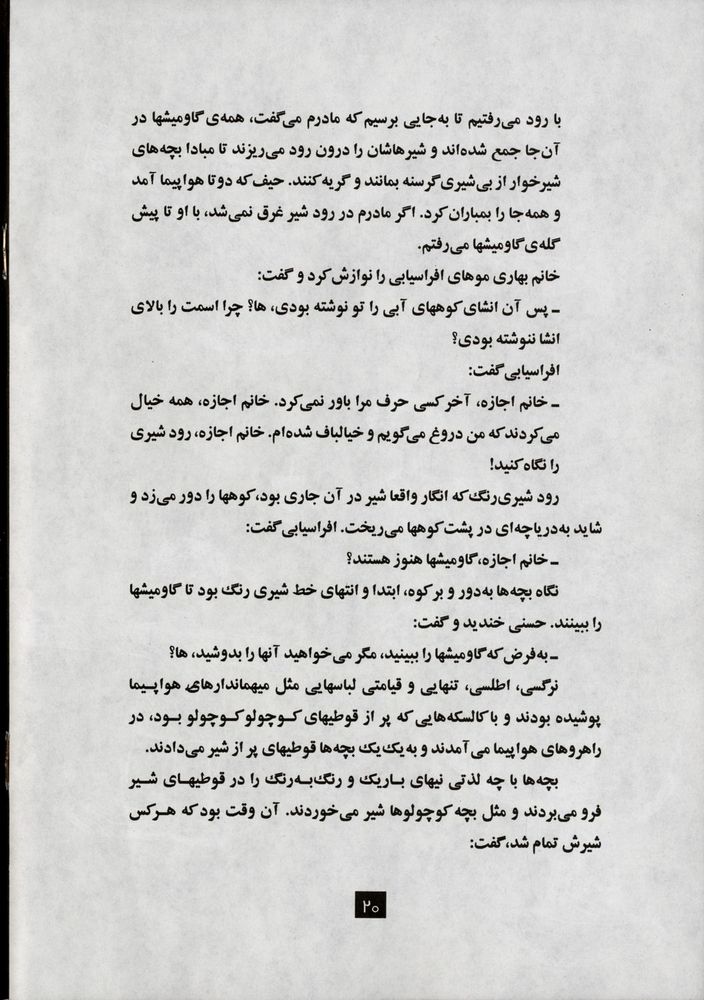 با رود می‌رفتیم تا به‌جایی برسیم که مادرم می‌گفت، همه‌ی گاومیشها در
آن‌جا جمع شده‌اند و شیرهاشان را درون رود می‌ریزند تا مبادا بچه‌های
شیرخوار از بی‌شیری گرسنه بمانند و گریه کنند. حیف که دوتا هواپیما آمد
و همه‌جا را بمباران کرد. اگر مادرم در رود شیر غرق نمی‌شد، با او تا پیش
گله‌ی گاومیشها می‌رفتم.
خانم بهاری موهای افراسیابی را نوازش کرد و گفت:
ـ پس آن انشای کوههای آبی را تو نوشته بودی، ها؟ چرا اسمت را بالای
انشا ننوشته بودی؟
افراسیابی گفت:
ـ خانم اجازه، آخر کسی حرف مرا باور نمی‌کرد. خانم اجازه، همه خیال
می‌کردند که من دروغ می‌گویم و خیالباف شده‌ام. خانم اجازه، رود شیری
را نگاه کنید!
رود شیری‌رنگ که انگار واقعا شیر در آن جاری بود، کوهها را دور می‌زد و
شاید به‌دریاچه‌ای در پشت کوهها می‌ریخت. افراسیابی گفت:
ـ خانم اجازه، گاومیشها هنوز هستند؟
نگاه بچه‌ها به‌دور و بر کوه، ابتدا و انتهای خط شیری رنگ بود تا گاومیشها
را ببینند. حسنی خندید و گفت:
ـ به‌فرض که گاومیشها را ببینید، مگر می‌خواهید آنها را بدوشید، ها؟
نرگسی، اطلسی، تنهایی و قیامتی لباسهایی مثل میهماندارهای هواپیما
پوشیده بودند و با کالسکه‌هایی که پر از قوطیهای کوچولو کوچولو بود، در
راهروهای هواپیما می‌آمدند و به یک یک بچه‌ها قوطیهای پر از شیر می‌دادند.
بچه‌ها با چه لذتی نیهای باریک و رنگ‌به‌رنگ را در قوطیهای شیر
فرو می‌بردند و مثل بچه کوچولوها شیر می‌خوردند. آن وقت بود که هرکس
شیرش تمام شد، گفت:
۲۰